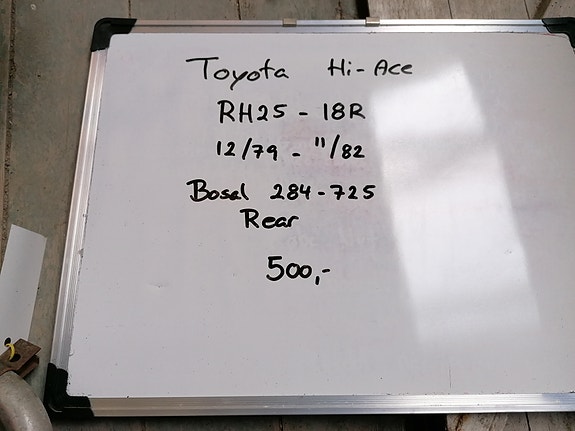 Toyota Hi-Ace
RH25 - 18R
12/79 - 11/82
Bosal 284-725
Rear
500,-